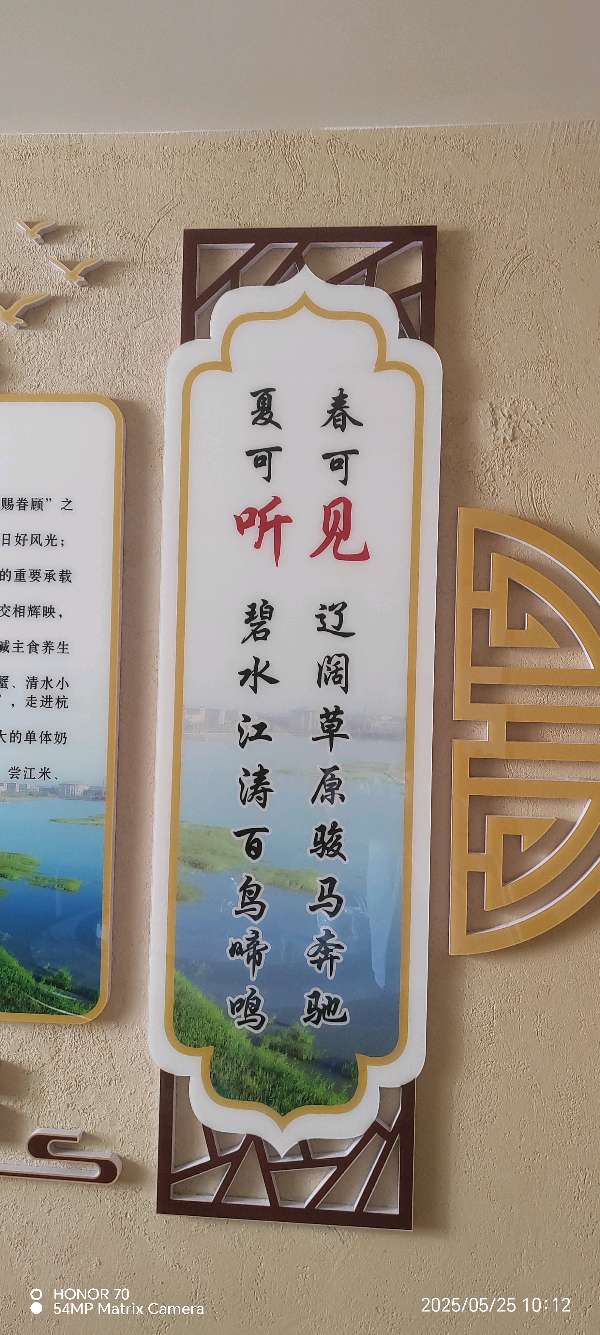 春可见辽阔草原骏马奔驰
夏可听碧水江涛百鸟啼鸣
赐眷顾”之
日好风光；
的重要承载
交相辉映，
碱主食养生
蟹、清水小
”，走进杭
大的单体奶
尝江米、
HONOR 70
54MP Matrix Camera
2025/05/25 10:12